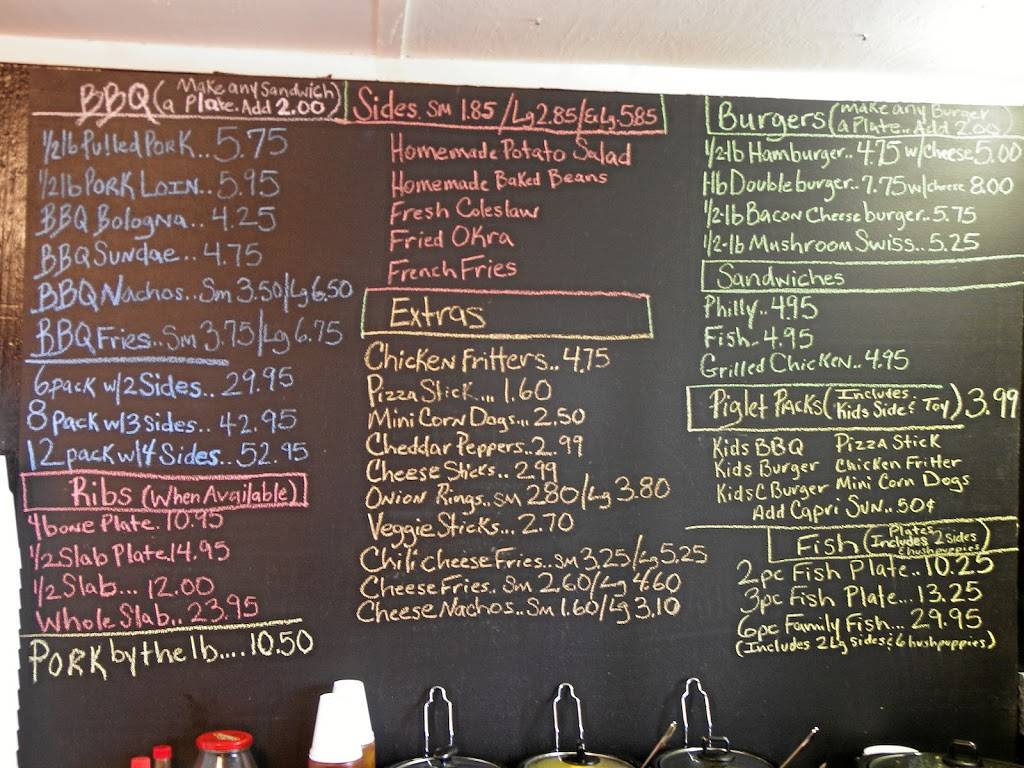 BBQ (Make any Sandwich
a Plate. Add 2.00)
1/2 lb Pulled Pork.. 5.75
1/2 lb Pork Loin.. 5.95
BBQ Bologna.. 4.25
BBQ Sundae.. 4.75
BBQ Nachos.. Sm 3.50/Lg 6.50
BBQ Fries.. Sm 3.75/Lg 6.75
6 pack w/2 Sides.. 29.95
8 pack w/3 Sides.. 42.95
12 pack w/4 Sides.. 52.95
Ribs (When Available)
4 bone Plate. 10.95
1/2 Slab Plate. 14.95
1/2 Slab... 12.00
Whole Slab.. 23.95
Pork by the lb.... 10.50
Sides. Sm 1.85/Lg 2.85/ExLg. 5.85
Homemade Potato Salad
Homemade Baked Beans
Fresh Coleslaw
Fried Okra
French Fries
Extras
Chicken Fritters.. 4.75
Pizza Stick... 1.60
Mini Corn Dogs... 2.50
Cheddar Peppers.. 2.99
Cheese Sticks.. 2.99
Onion Rings.. Sm 2.80/Lg 3.80
Veggie Sticks... 2.70
Chili Cheese Fries.. Sm 3.25/Lg 5.25
Cheese Fries.. Sm 2.60/Lg 4.60
Cheese Nachos.. Sm 1.60/Lg 3.10
Burgers (make any Burger
a Plate.. Add 2.00)
1/2-lb Hamburger.. 4.75 w/Cheese 5.00
1lb Double burger.. 7.75 w/cheese 8.00
1/2-lb Bacon Cheese burger.. 5.75
1/2-lb Mushroom Swiss.. 5.25
Sandwiches
Philly.. 4.95
Fish.. 4.95
Grilled Chicken.. 4.95
Piglet Packs (Includes
Kids Side & Toy) 3.99
Kids BBQ Pizza Stick
Kids Burger Chicken Fritter
Kids C Burger Mini Corn Dogs
Add Capri Sun.. 50¢
Fish (Plates
Includes 2 Sides
& hushpuppies)
2pc Fish Plate.. 10.25
3pc Fish Plate... 13.25
6pc Family Fish... 29.95
(Includes 2 Lg sides & 6 hushpuppies)